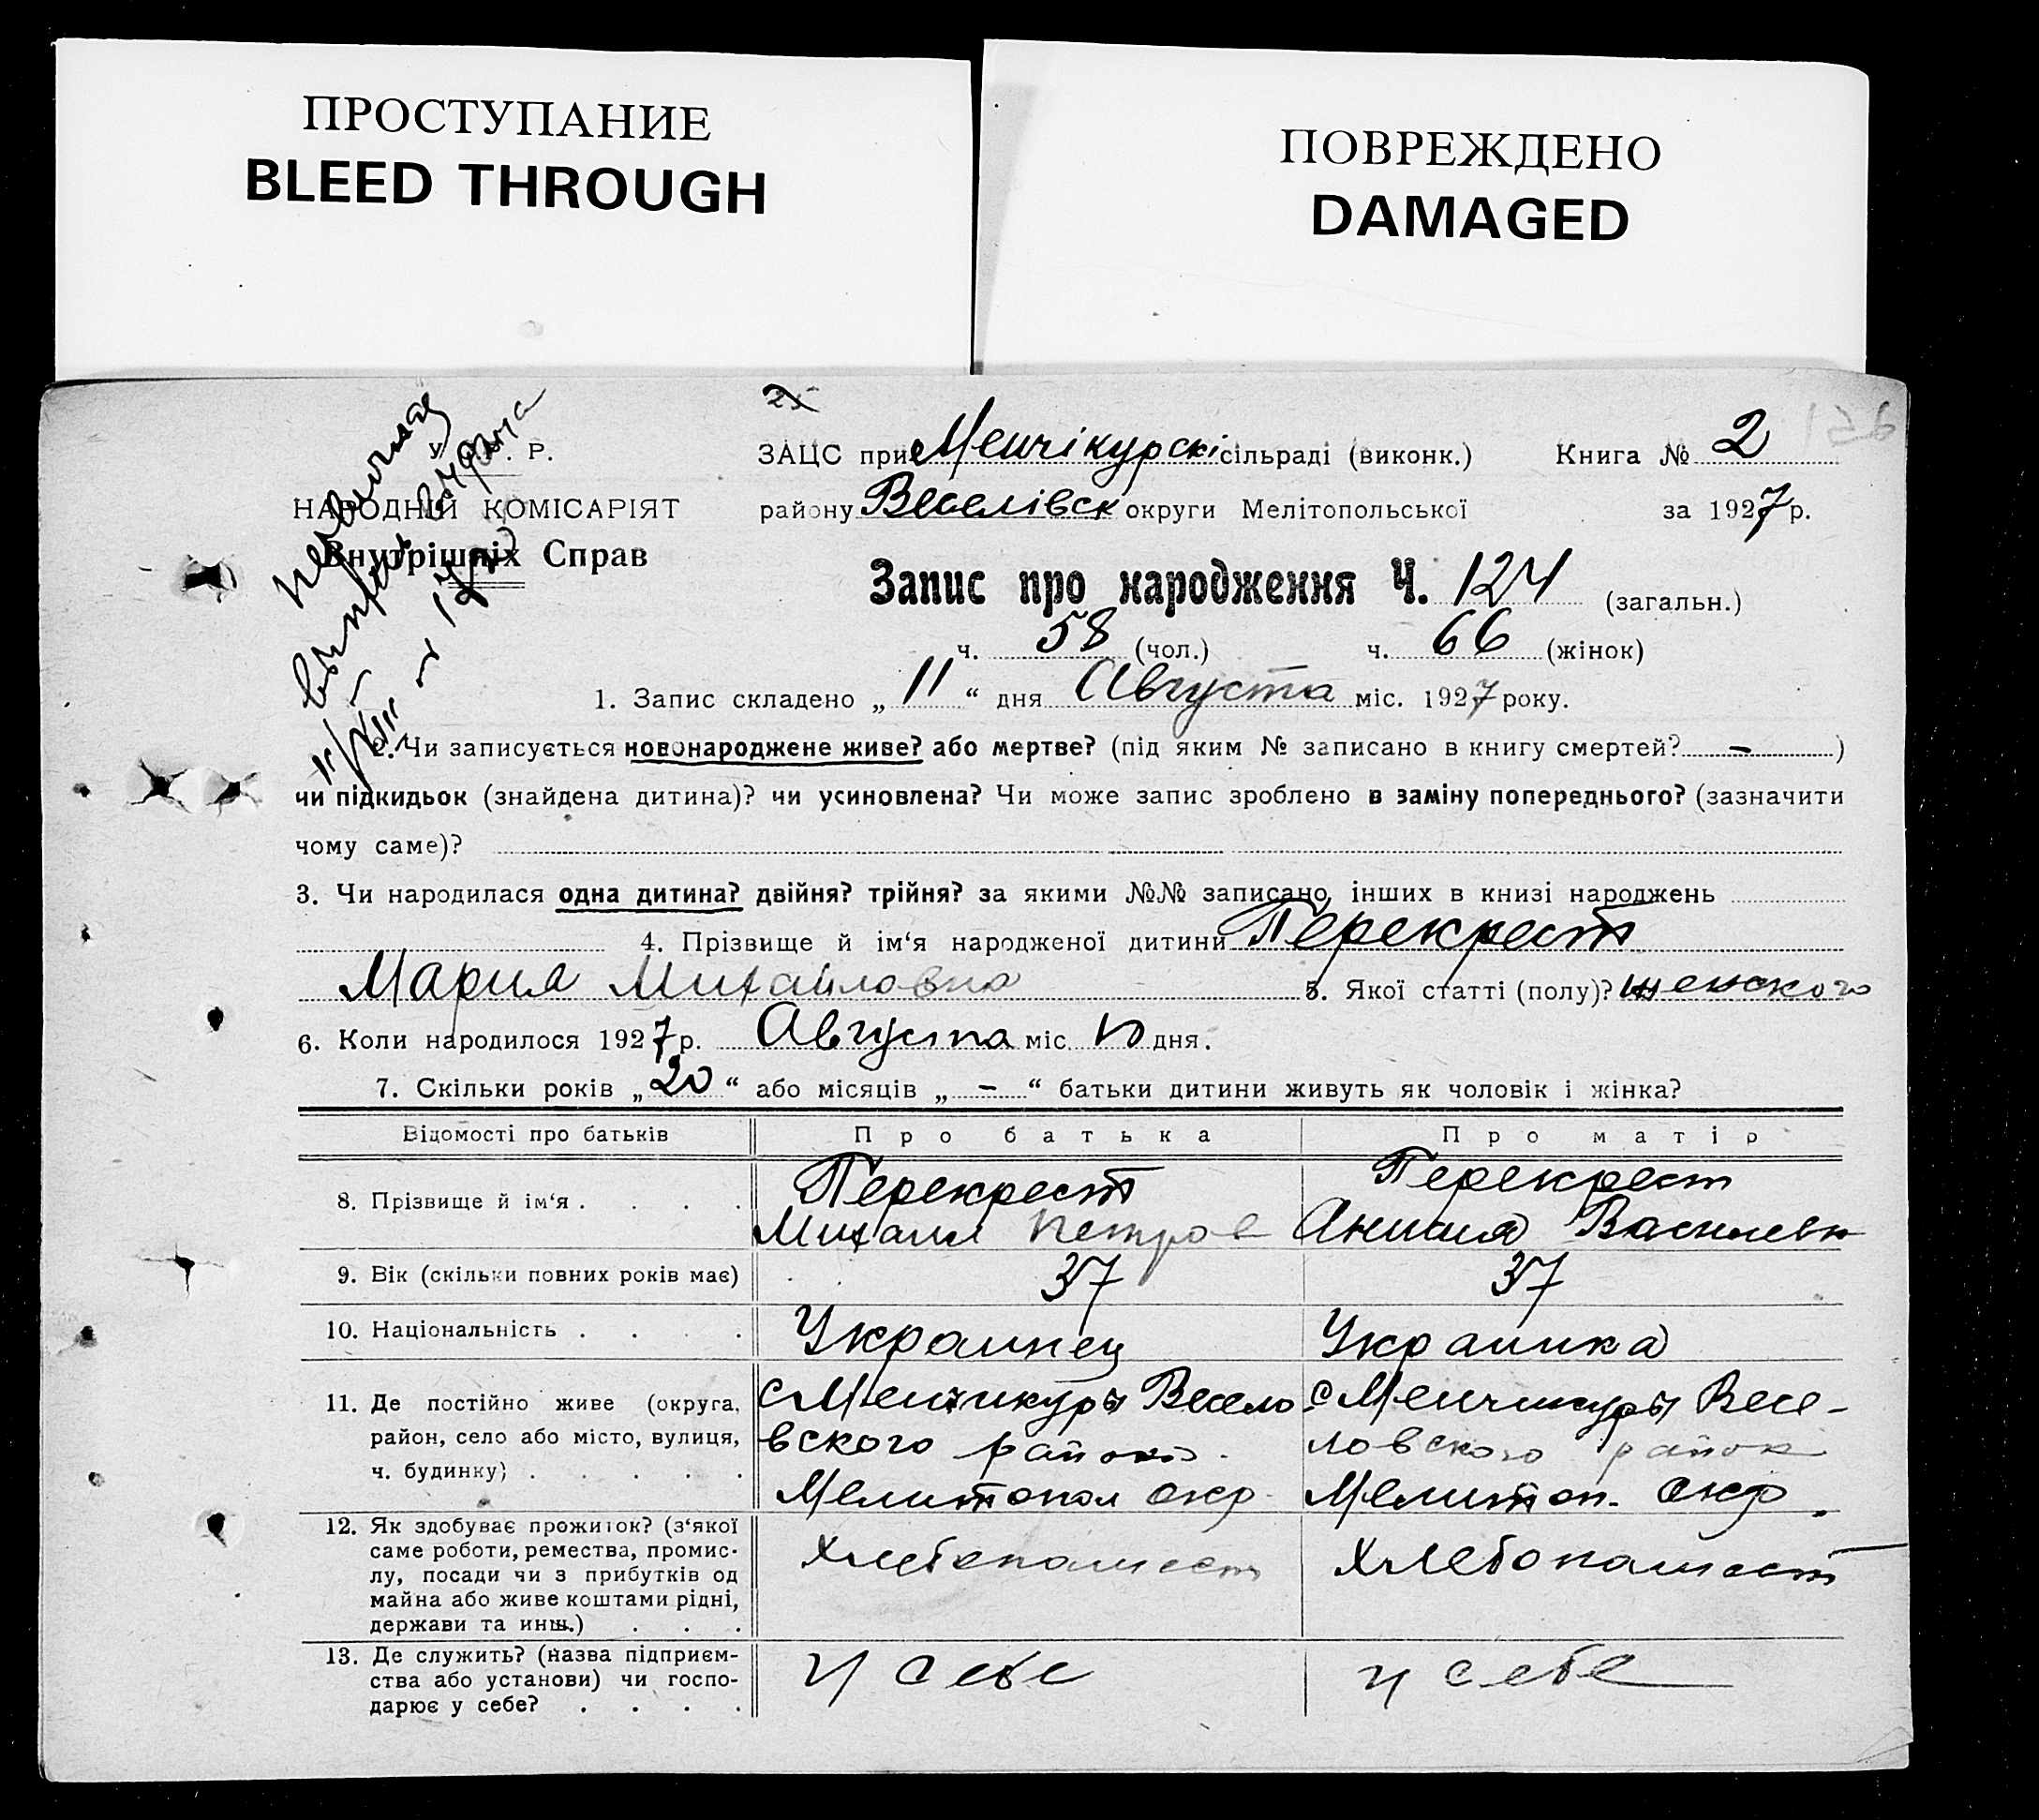 ПРОСТУПАНИЕ
BLEED THROUGH
ПОВРЕЖДЕНО
DAMAGED
25
У. . Р. ЗАЦС при Менчікурскі сільраді (виконк.) Книга № 2
НАРОДНІЙ КОМІСАРІЯТ району Веселівск округи Мелітопольської за 1927 р.
Внутрішніх Справ
выпись видана
Запис про народження Ч. 124 (загальн.)
ч. 58 (чол.) ч. 66 (жінок)
1. Запис складено „ 11 “ дня Августа міс. 1927 року.
2. Чи записується новонароджене живе? або мертве? (під яким № записано в книгу смертей? – )
чи підкидьок (знайдена дитина)? чи усиновлена? Чи може запис зроблено в заміну попереднього? (зазначити
чому саме)?
3. Чи народилася одна дитина? двійня? трійня? за якими №№ записано інших в книзі народжень
4. Прізвище й ім‘я народженої дитини Перекрест
Мария Михайловна 5. Якої статті (полу)? женского
6. Коли народилося 1927 р. Августа міс. 10 дня.
7. Скільки років „ 20 “ або місяців „ – “ батьки дитини живуть як чоловік і жінка?
Відомості про батьків Про батька Про матір
8. Прізвище й ім‘я . . . . Перекрест Михаил Петров Перекрест Анисия Васильевн
9. Вік (скільки повних років має) 37 37
10. Національність . . . . Украинец Украинка
11. Де постійно живе (округа, с Менчикуры Весело с Менчикуры Весе-
район, село або місто, вулиця, вского района ловского район
ч. будинку) . . . . . Мелитопол окр. Мелитоп. окр.
12. Як здобуває прожиток? (з‘якої
саме роботи, ремества, промис- Хлебопашест Хлебопашест
лу, посади чи з прибутків од
майна або живе коштами рідні,
держави та инш.) . . .
13. Де служить? (назва підприєм- у себе у себе
ства або установи) чи госпо-
дарює у себе? . . . .